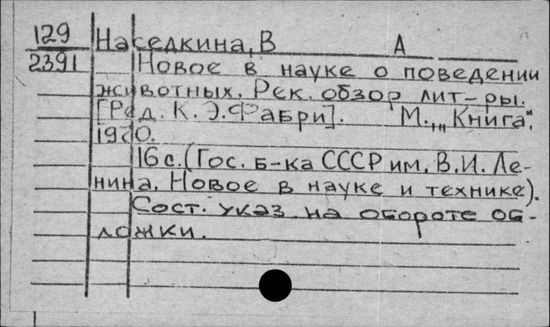 129 Наседкина, В А
2391 Новое в науке о поведении
животных. Рек. обзор лит-ры.
[Ред. К. Э. Фабри]. М., „Книга",
16 с. (Гос. б-ка СССР им. В. И. Ле-
нина. Новое в науке и технике).
Сост. указ. на обороте об-
ложки.